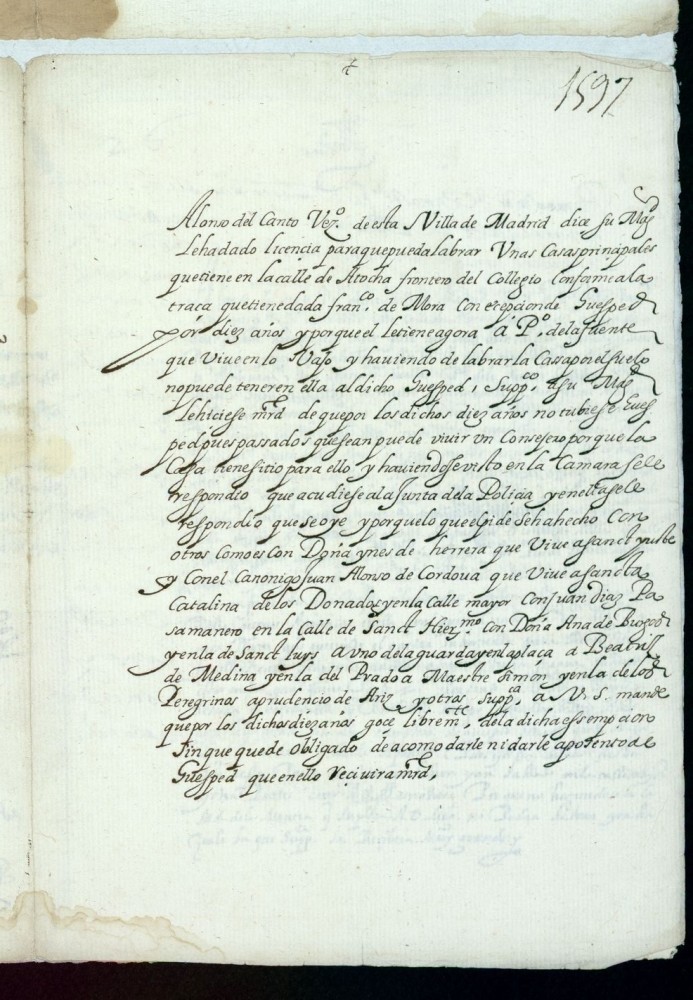 1597
Alonso del Canto Vezº. de esta Villa de Madrid dice su Magd
le ha dado licencia para que pueda labrar Unas Casas principales
que tiene en la calle de Atocha frontero del Collegio Conforme a la
traça que tiene dada franco. de Mora Con excepcion de Guesped
por diez años y porque el le tiene agora a Pº. de la fuente
que Vive en lo Vajo y haviendo de labrar la Cassa por el suelo
no puede tener en ella al dicho Guesped, Suppco. a su Magd
le hiciese mrd de que por los dichos diez años no tubiese Gues
ped pues passados que sean puede vivir Un Consejero porque la
Casa tiene sitio para ello y haviendose visto en la Camara se le
respondio que acudiese a la Junta de la Policia y en ella se le
respondio que se oye y porque lo que el pide se ha hecho Con
otros Como es Con Doña ynes de herrera que Vive a Sanct
y Con el Canonigo Juan Alonso de Cordova que Vive a Sancta
Catalina de los Donados y en la Calle mayor Con Juan diaz Pa
samanero en la Calle de Sanct Hiermo. Con Doña Ana de
y en la de Sanct luys a uno de la guarda y en la plaça a Beatriz
de Medina y en la del Prado a Maestre Simón y en la de los
Peregrinos a prudencio de y otros, Suppca. a V. S. mande
que por los dichos diez años goce libremte. de la dicha essempcion
sin que quede obligado de acomodarle ni darle aposento de
Guesped que en ello Recivira mrd,